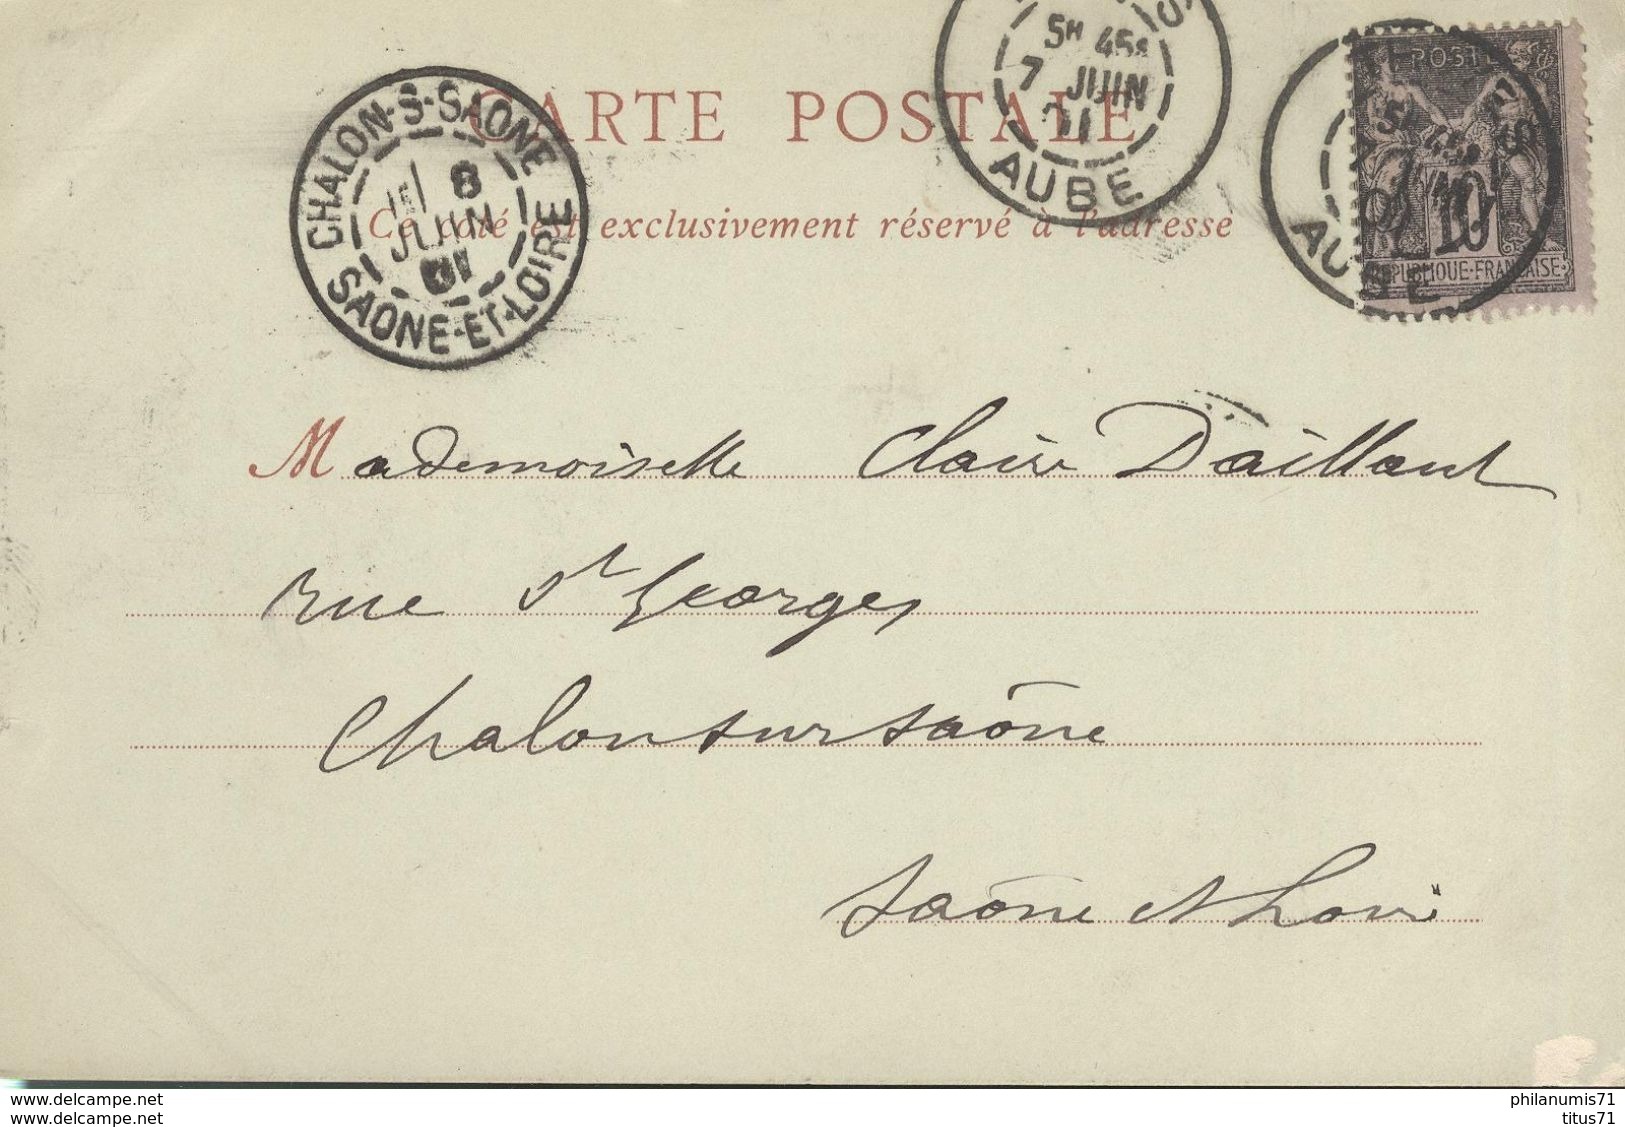 CARTE POSTALE
Ce côté est exclusivement réservé à l'adresse
CHALON-S-SAONE
8
JUIN
01
SAONE-ET-LOIRE
5H 45S
7 JUIN
01
AUBE
POSTE
10
REPUBLIQUE·FRANÇAISE
AUBE
Mademoiselle Claire Daillant
rue St Georges
Chalon sur Saône
Saône et Loire
delcampe.net
philanumis71
delcampe.net
titus71